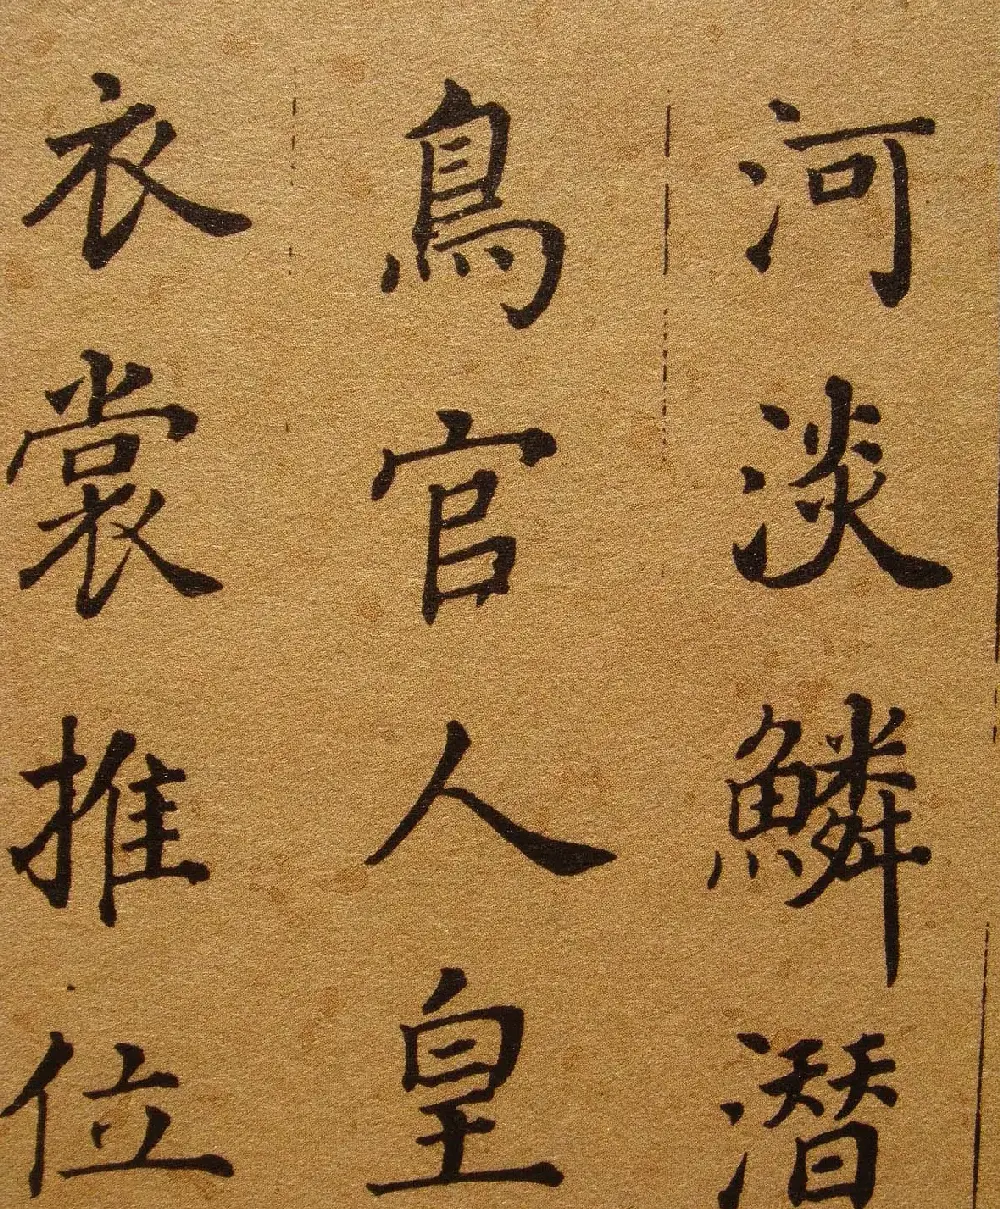 河淡鱗潛
鳥官人皇
衣裳推位